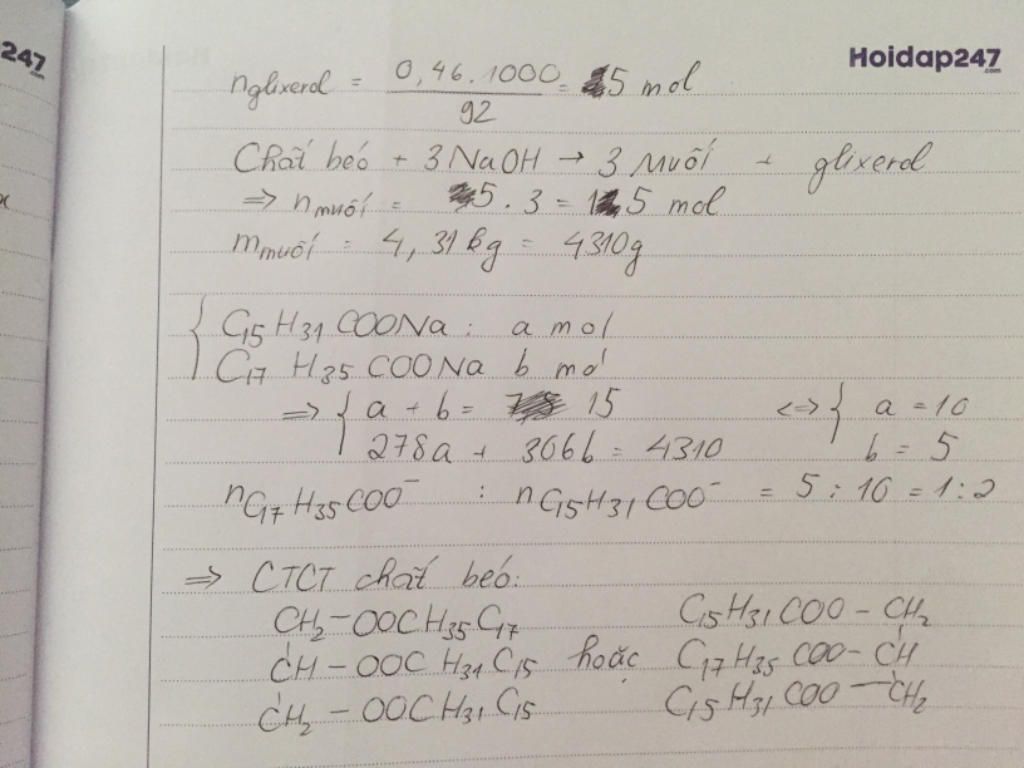 247
.com
Hoidap247
.com
n glixerol = 0,46.1000 / 92 = 5 mol
Chất béo + 3 NaOH → 3 Muối + glixerol
=> n muối = 5.3 = 15 mol
m muối = 4,31 kg = 4310g
{ C15H31COONa : a mol
C17H35COONa b mol
=> { a + b = 15 <=> { a = 10
278a + 306b = 4310 b = 5
nC17H35COO⁻ : nC15H31COO⁻ = 5 : 10 = 1 : 2
=> CTCT chất béo:
CH2-OOCH35C17 C15H31COO-CH2
CH-OOCH31C15 hoặc C17H35COO-CH
CH2-OOCH31C15 C15H31COO-CH2